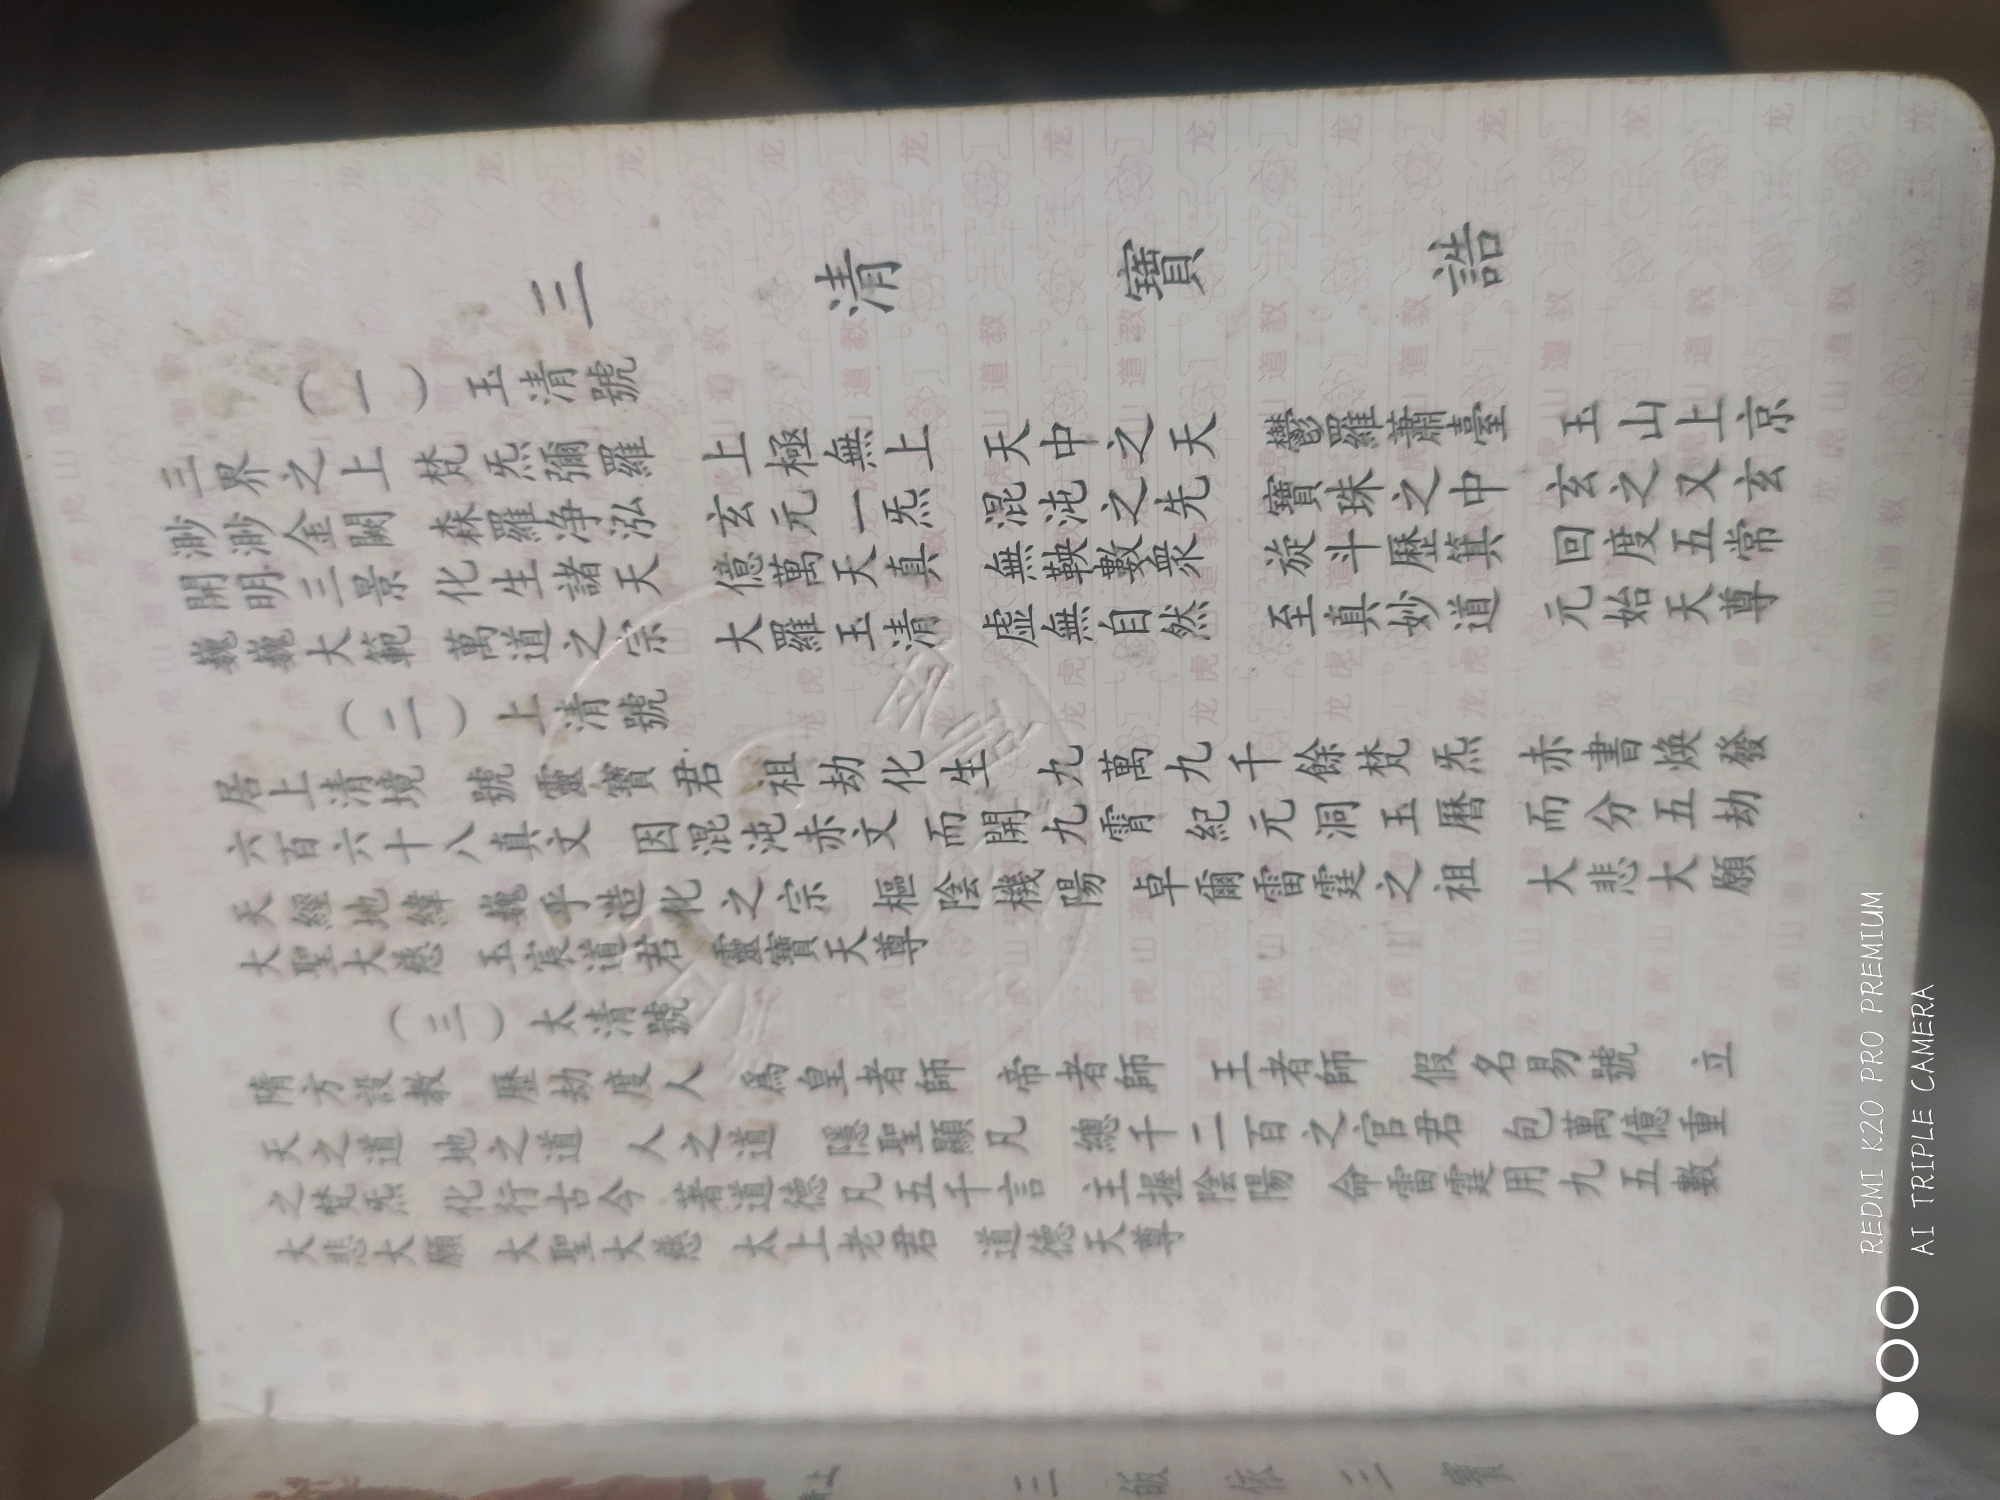 三清寶誥
（一）玉清號
三界之上 梵炁彌羅 上極無上 天中之天 鬱羅蕭臺 玉山上京
渺渺金闕 森羅净泓 玄元一炁 混沌之先 寶珠之中 玄之又玄
開明三景 化生諸天 億萬天真 無鞅數衆 旋斗歷箕 回度五常
巍巍大範 萬道之宗 大羅玉清 虛無自然 至真妙道 元始天尊
（二）上清號
居上清境 號靈寶君 祖劫化生 九萬九千餘梵炁 赤書焕發
六百六十八真文 因混沌赤文 而開九霄 紀元洞玉曆 而分五劫
天經地緯 巍乎造化之宗 樞陰機陽 卓爾雷霆之祖 大悲大願
大聖大慈 玉宸道君 靈寶天尊
（三）太清號
隋方設教 歷劫度人 爲皇者師 帝者師 王者師 假名易號 立
天之道 地之道 人之道 隱聖顯凡 總千二百之官君 包萬億重
之梵炁 化行古今 著道德凡五千言 主握陰陽 命雷霆用九五數
大悲大願 大聖大慈 太上老君 道德天尊
三皈依 三寶
REDMI K20 PRO PREMIUM
AI TRIPLE CAMERA
龙虎山道教